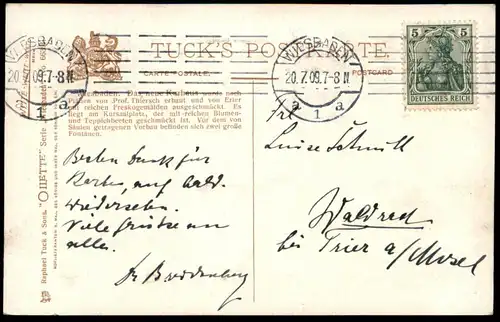 TUCK'S POSTKARTE.
CARTE POSTALE.
POSTCARD
WIESBADEN
20.7.09.7-8N
1
a
WIESBADEN
20.7.09.7-8N
a 1 a
5 5
DEUTSCHES REICH
Wiesbaden. Das neue Kurhaus wurde nach
Plänen von Prof. Thiersch erbaut und von Erler
mit reichen Freskogemälden ausgeschmückt. Es
liegt am Kurssalplatz, der mit reichen Blumen-
und Teppichbeeten geschmückt ist. Vor dem von
Säulen getragenen Vorbau befinden sich zwei große
Fontänen.
Raphael Tuck & Sons. "OILETTE" Serie
Besten Dank für
Karten, auf bald.
Wiedersehn.
Viele Grüsse an
alle.
Frl
Luise Schmitt
Waldrach
bei Trier a/Mosel